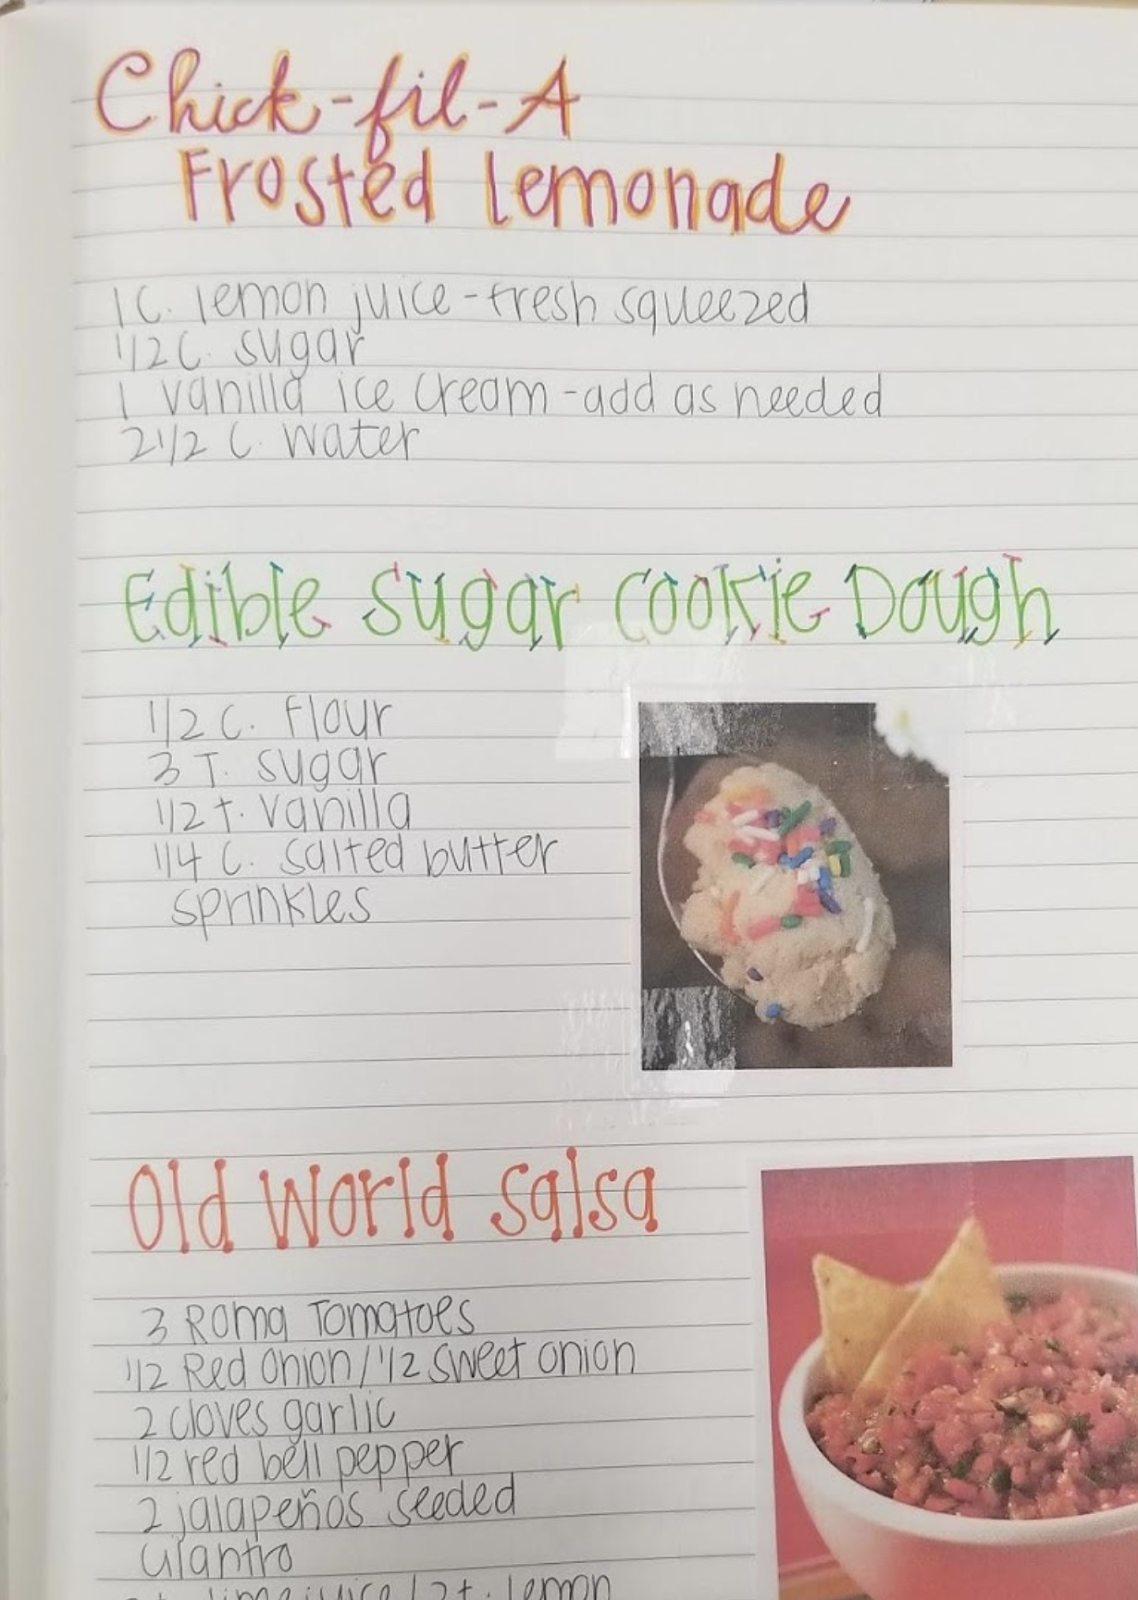 Chick-fil-A
Frosted Lemonade
1 C. lemon juice - fresh squeezed
1/2 C. sugar
1 vanilla ice cream - add as needed
2 1/2 C. water
Edible Sugar Cookie Dough
1/2 C. Flour
3 T. sugar
1/2 t. vanilla
1/4 C. salted butter
sprinkles
Old World Salsa
3 Roma Tomatoes
1/2 Red Onion / 1/2 sweet onion
2 cloves garlic
1/2 red bell pepper
2 jalapeños seeded
cilantro
lime juice / 2 t. lemon